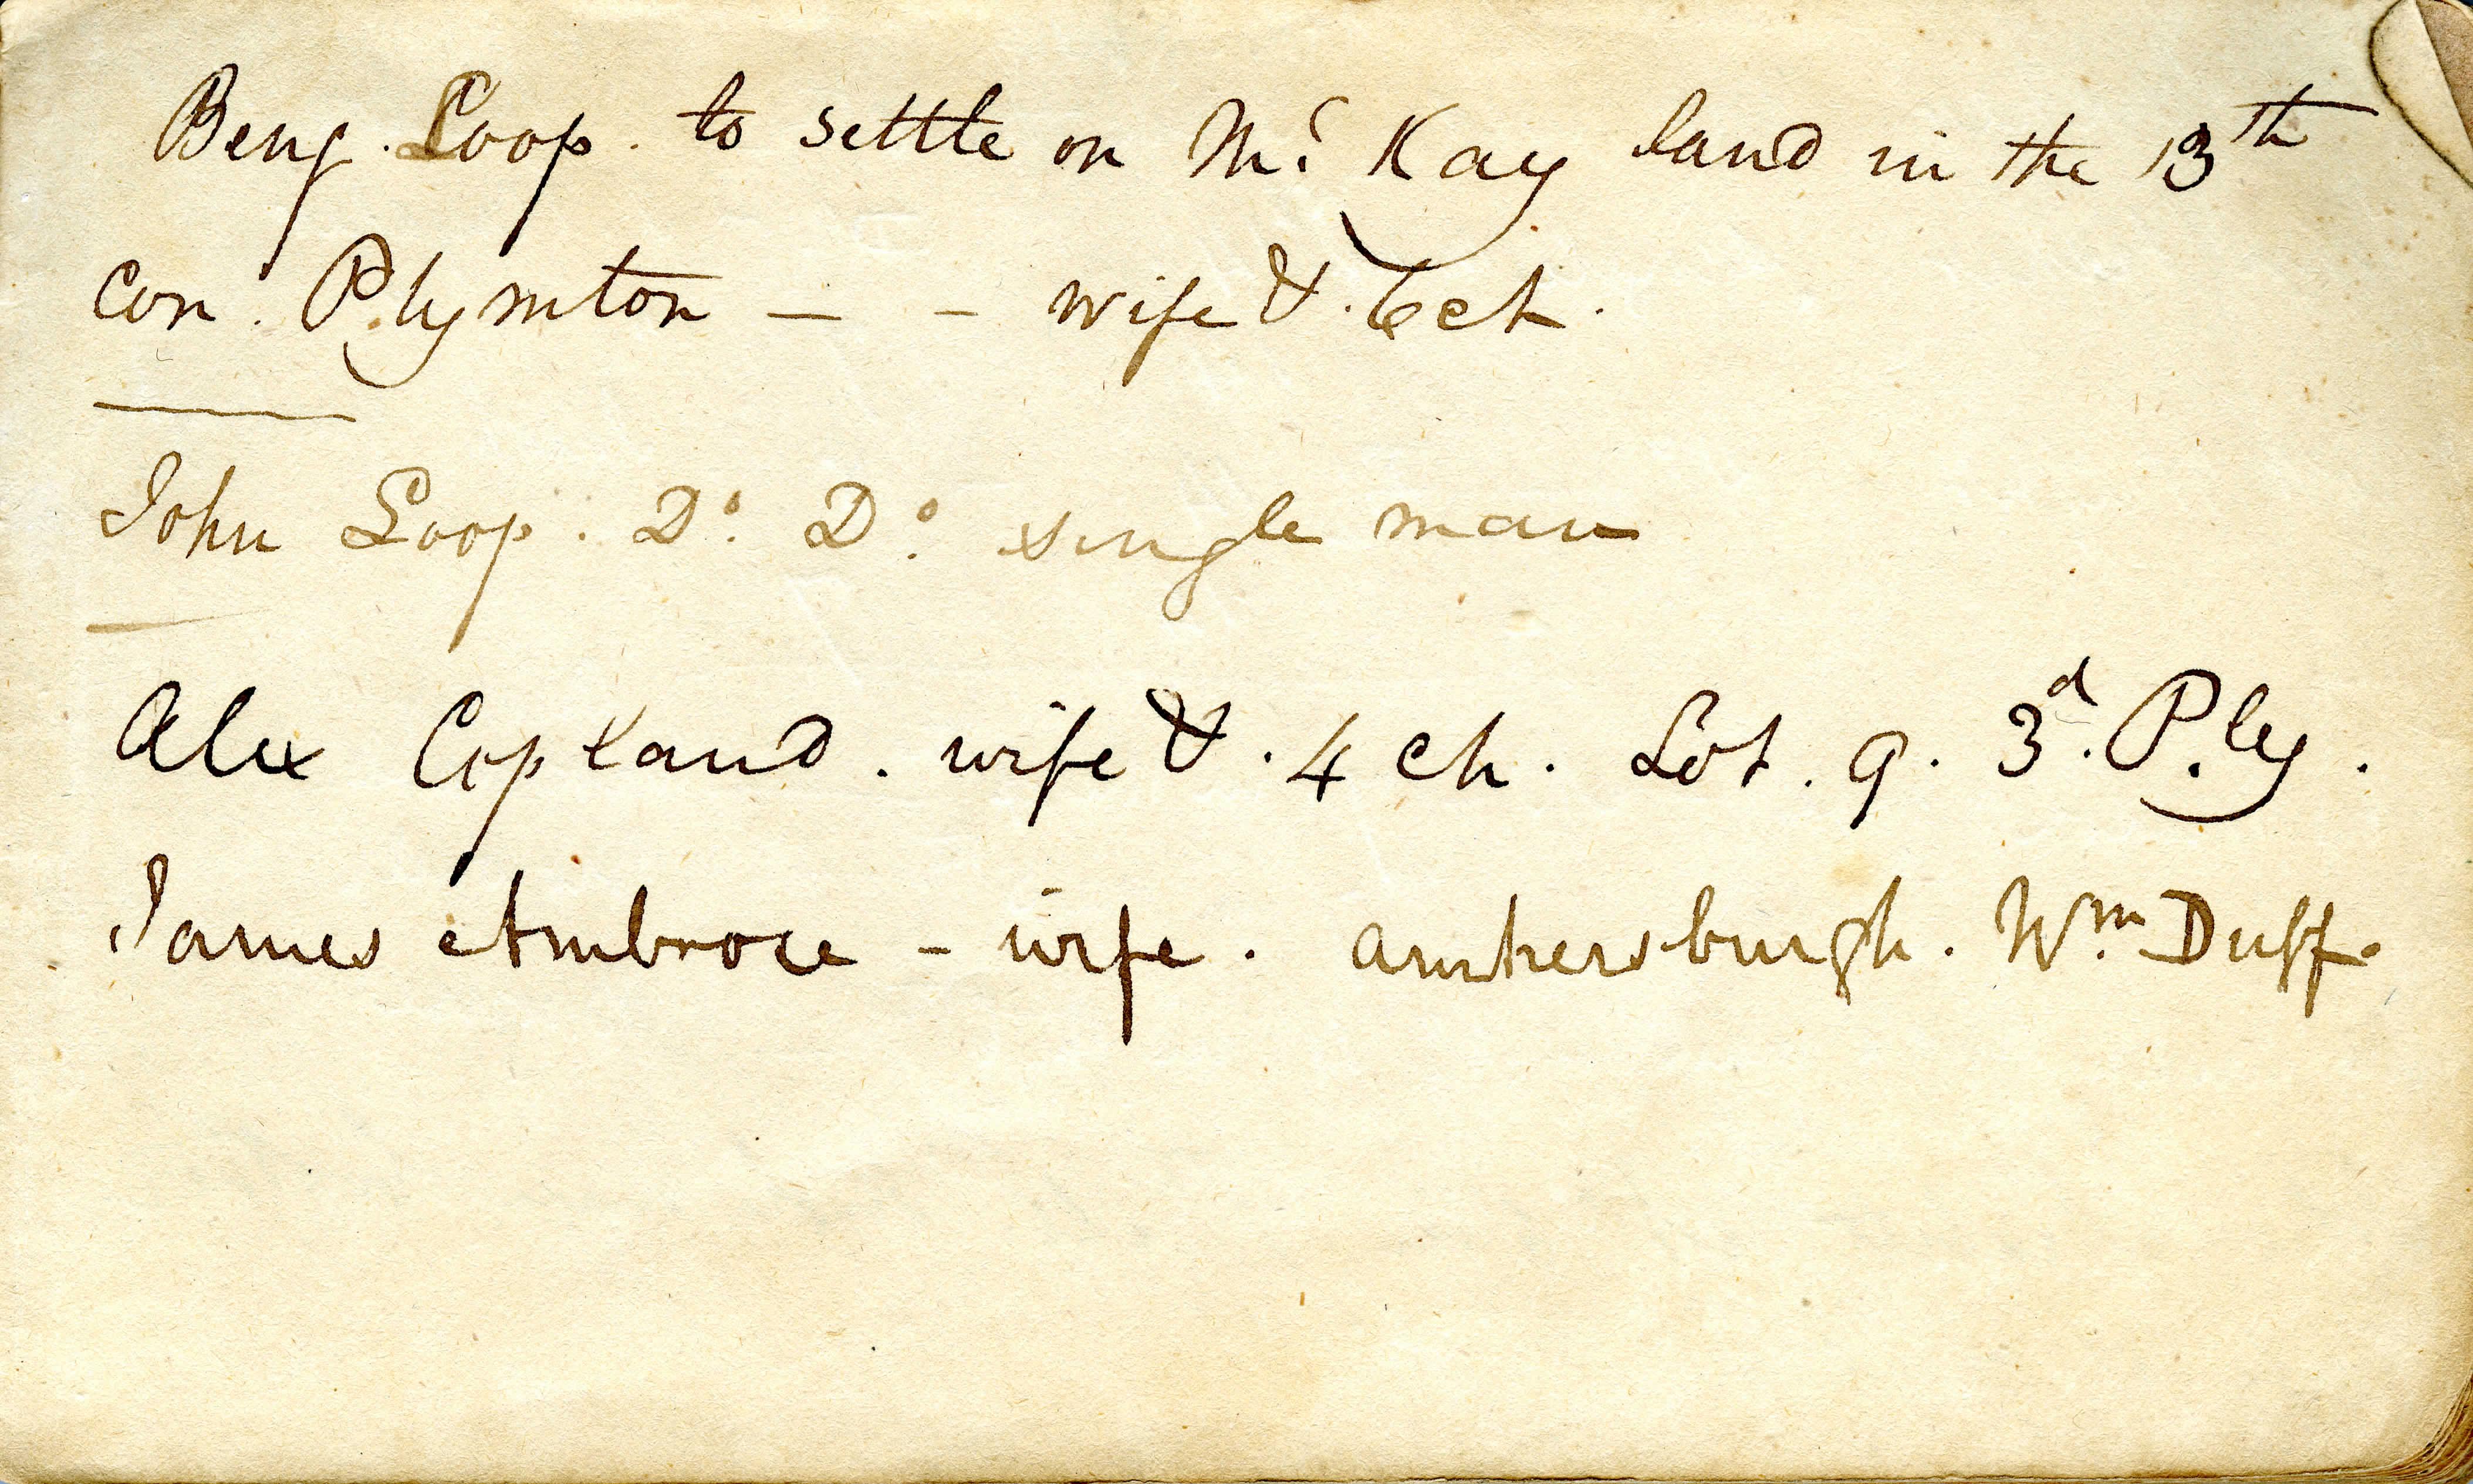 Benj. Loop. to settle on Mc Kay land in the 13th
Con. Plymton — - wife & . 6 ch .
John Loop . Do. Do. single man
Alex Copland . wife & . 4 ch . Lot . 9 . 3d. Ply .
James Ambrose - wife . Amhersburgh . Wm. Duff.